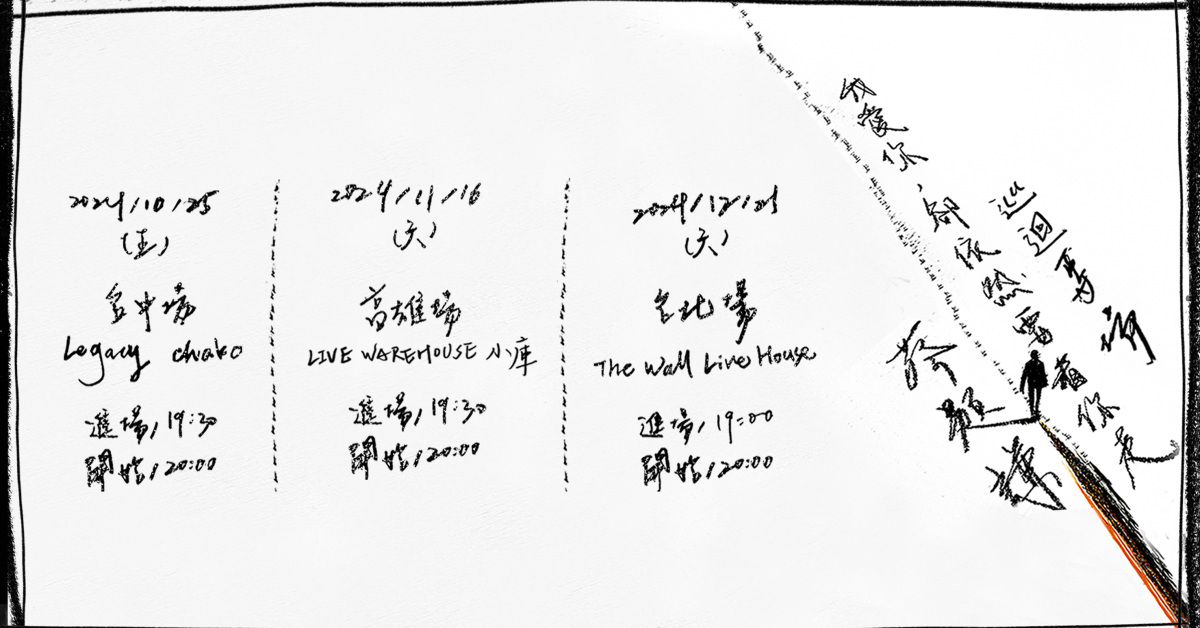 2024/10/25
(五)
台中場
Legacy
進場/19:30
開始/20:00
2024/11/16
(六)
高雄場
LIVE WAREHOUSE 小庫
進場/19:30
開始/20:00
2024/12/21
(六)
台北場
The Wall Live House
進場/19:00
開始/20:00
我愛你,卻依然
巡迴專場